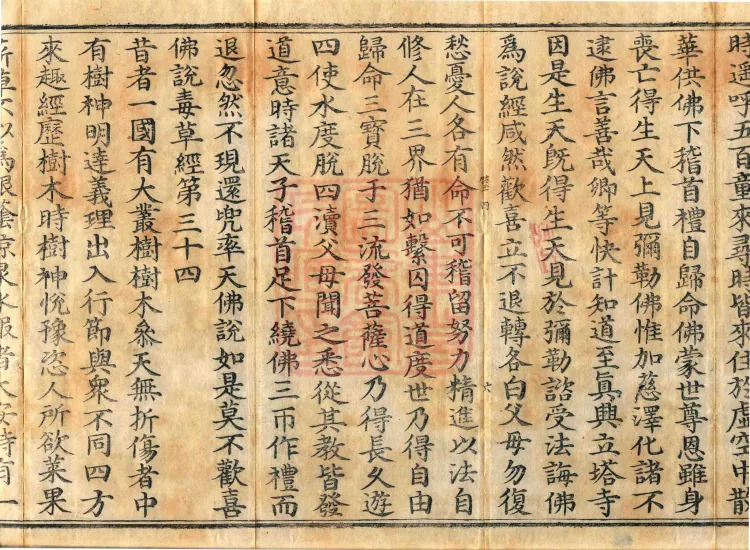 時遥呼五百童來尋時皆來住於虛空中散
華供佛下稽首禮自歸命佛蒙世尊恩雖身
喪亡得生天上見彌勒佛惟加慈澤化諸不
逮佛言善哉卿等快計知道至眞興立塔寺
因是生天旣得生天見於彌勒諮受法誨佛
爲說經咸然歡喜立不退轉各白父母勿復
六
愁憂人各有命不可稽留努力精進以法自
修人在三界猶如繫囚得道度世乃得自由
歸命三寶脫于三流發菩薩心乃得長久遊
四使水度脫四瀆父母聞之悉從其教皆發
道意時諸天子稽首足下繞佛三帀作禮而
退忽然不現還兜率天佛說如是莫不歡喜
佛說毒草經第三十四
昔者一國有大叢樹樹木叅天無折傷者中
有樹神明達義理出入行節與衆不同四方
來趣經歷樹木時樹神悅豫恣人所欲菜果
以爲限蔭涼泉水服者大安時有一